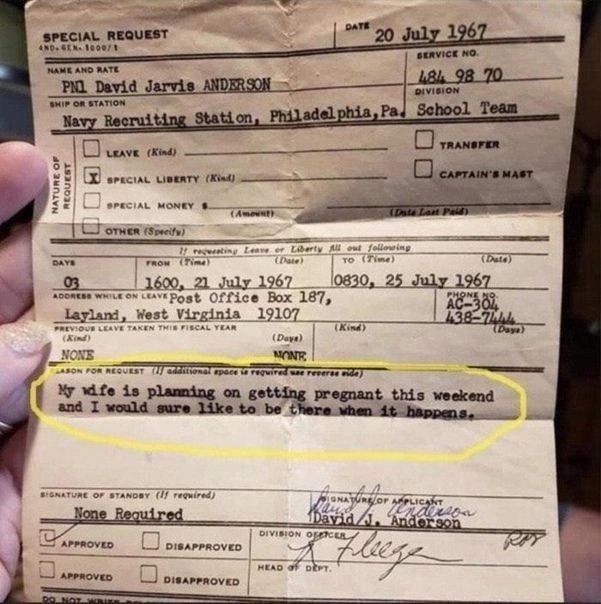 SPECIAL REQUEST
AND. GEN. 1000/1
DATE 20 July 1967
NAME AND RATE
SERVICE NO.
PN1 David Jarvis ANDERSON
484 98 70
SHIP OR STATION
DIVISION
Navy Recruiting Station, Philadelphia, Pa. School Team
NATURE OF REQUEST
LEAVE (Kind)
TRANSFER
X SPECIAL LIBERTY (Kind)
CAPTAIN'S MAST
SPECIAL MONEY $
(Amount)
(Date Last Paid)
OTHER (Specify)
If requesting Leave or Liberty fill out following
DAYS FROM (Time) (Date) TO (Time) (Date)
03 1600, 21 July 1967 0830, 25 July 1967
ADDRESS WHILE ON LEAVE Post Office Box 187,
PHONE NO.
AC-304
Layland, West Virginia 19107
438-7444
PREVIOUS LEAVE TAKEN THIS FISCAL YEAR
(Kind) (Days) (Kind) (Days)
NONE NONE
REASON FOR REQUEST (If additional space is required use reverse side)
My wife is planning on getting pregnant this weekend
and I would sure like to be there when it happens.
SIGNATURE OF STANDBY (If required)
SIGNATURE OF APPLICANT
David J. Anderson
None Required
David J. Anderson
APPROVED DISAPPROVED
DIVISION OFFICER
HEAD OF DEPT.
APPROVED DISAPPROVED
DO NOT WRITE